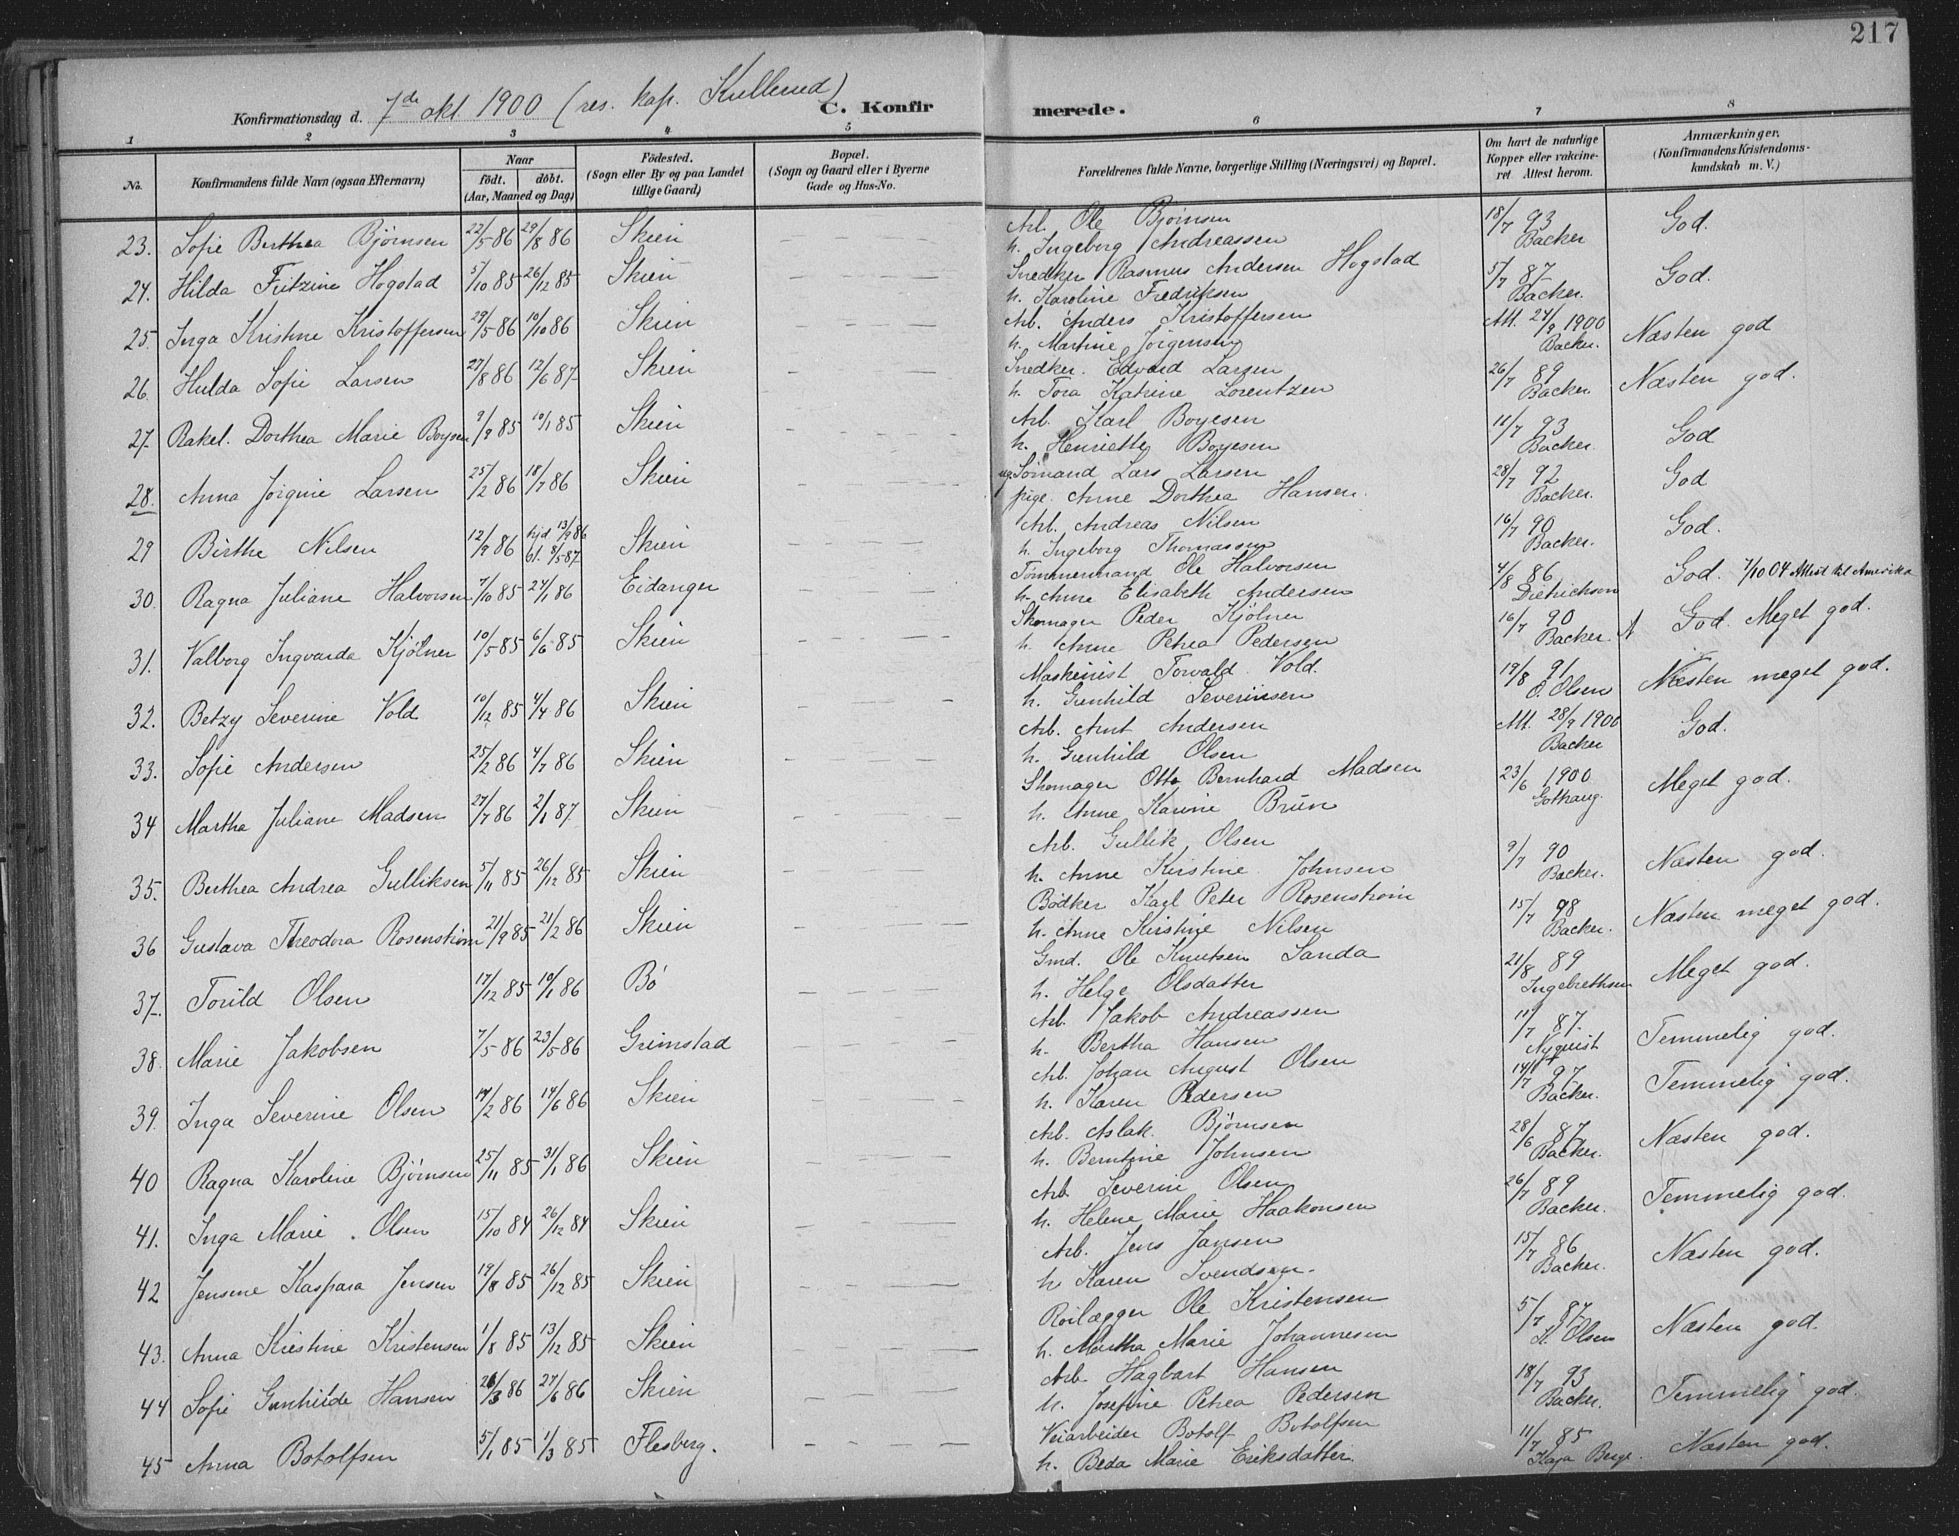 217
Konfirmationsdag d. 7de okt 1900 (res. kap. Kullerud) C. Konfirmerede.
1 2 3 4 5 6 7 8
No. Konfirmandens fulde Navn (ogsaa Efternavn) Naar født. døbt. (Aar, Maaned og Dag) Fødested. (Sogn eller By og paa Landet tillige Gaard) Bopæl. (Sogn og Gaard eller i Byerne Gade og Hus-No. Forældrenes fulde Navne, borgerlige Stilling (Næringsvei) og Bopæl. Om havt de naturlige Kopper eller vakcineret Attest herom. Anmærkninger. (Konfirmandens Kristendomskundskab m. V.)
23. Sofie Berthea Bjørnsen 22/5 86 29/8 86 Skien Arb. Ole Bjørnsen h. Ingeborg Andreassen 18/7 93 Backer God.
24. Hilda Fritzine Hogstad 5/10 85 26/12 85 Skien Snedker Rasmus Andersen Hogstad h. Karoline Fredriksen 5/7 87 Backer. God.
25. Inga Kristine Kristoffersen 29/5 86 10/10 86 Skien Arb. Anders Kristoffersen h. Martine Jørgensen Att. 24/9 1900 Backer. Næsten god
26. Hulda Sofie Larsen 27/8 86 12/6 87 Skien Snedker. Edvard Larsen h. Tora Katrine Lorentzen 26/7 89 Backer Næsten god.
27. Rakel. Dorthea Marie Boysen 9/9 85 10/1 85 Skien Arb. Karl Boyesen h. Henriette Boyesen 11/7 93 Backer God
28. Anna Jørgine Larsen 25/2 86 18/7 86 Skien ug. Sømand Lars Larsen pige. Anne Dorthea Hansen. 28/7 92 Backer. God
29 Birthe Nilsen 12/9 86 hjd 13/9 86 bl. 8/5 87 Skien Arb. Andreas Nilsen h. Ingeborg Thomassen 16/7 90 Backer. God.
30. Ragna Juliane Halvorsen 7/10 85 24/1 86 Eidanger Tømmermand Ole Halvorsen h. Anne Elisabeth Andersen 4/8 86 Dietrichson God. 7/10 04 Attest til Amerika
31. Valborg Ingvarda Kjølner 10/5 85 6/6 85 Skien Skomager Peder Kjølner h. Anne Petrea Pedersen 16/7 90 Backer. God. Meget god.
32. Betzy Severine Vold 10/12 85 4/4 86 Skien Maskinist Torvald Vold. h. Gunhild Severinsen 19/8 91 E. Olsen Næsten meget god.
33. Sofie Andersen 25/2 86 4/7 86 Skien Arb. Arnt Andersen h. Gunhild Olsen Att. 28/9 1900 Backer God.
34 Martha Juliane Madsen 27/7 86 2/1 87 Skien Skomager Otto Bernhard Madsen h. Anne Karine Bruun 23/6 1900 Gothaug. Meget god.
35. Berthea Andrea Gulliksen 5/11 85 26/12 85 Skien Arb. Gullik Olsen h. Anne Kirstine Johnsen 9/7 90 Backer. Næsten god.
36 Gustava Theodora Rosenstrøm 21/9 85 21/2 86 Skien Bødker Karl Peter Rosenstrøm h. Anne Kirstine Nilsen 15/7 98 Backer. Næsten meget god.
37. Torild Olsen 17/12 85 10/1 86 Bø Gmd. Ole Knutsen Sanda h. Helge Olsdatter 21/8 89 Ingebrethsen Meget god.
38. Marie Jakobsen 7/5 86 23/5 86 Grimstad Arb. Jakob Andreassen h. Bertha Hansen 11/7 87. Nyquist Temmelig god.
39. Inga Severine Olsen 14/2 86 14/6 86 Skien Arb. Johan August Olsen h. Karen Pedersen 14/7 97 Backer. Temmelig god.
40 Ragna Karoline Bjørnsen 25/11 85 31/1 86 Skien Arb. Aslak Bjørnsen h. Berntine Johnsen 28/6 87 Backer. Næsten god.
41. Inga Marie Olsen 15/10 84 26/12 84 Skien Arb. Severin Olsen h. Helene Marie Haakonsen 26/7 89 Backer. Temmelig god.
42 Jensine Kaspara Jensen 19/8 85 26/12 85 Skien Arb. Jens Jansen h. Karen Svendsen. 15/7 86 Backer. Næsten god.
43. Anna Kirstine Kristensen 1/8 85 13/12 85 Skien Rørlægger Ole Kristensen h. Martha Marie Johannesen 5/7 87 Olsen Næsten god.
44 Sofie Gunhilde Hansen 26/3 86 27/6 86 Skien Arb. Hagbart Hansen h. Josefine Petrea Pedersen 18/7 93 Backer. Temmelig god.
45 Anna Botolfsen 5/1 85 1/3 85 Flesberg. Veiarbeider Botolf Botolfsen h. Beda Marie Eriksdatter. 11/7 85 Berge. Næsten god.